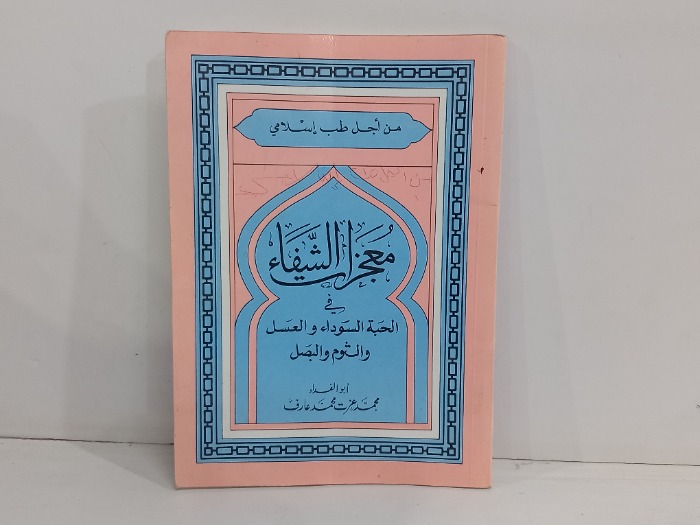 من أجل طب إسلامي
معجزات الشفاء
في
الحبة السوداء والعسل
والثوم والبصل
أبو الفداء
محمد عزت محمد عارف